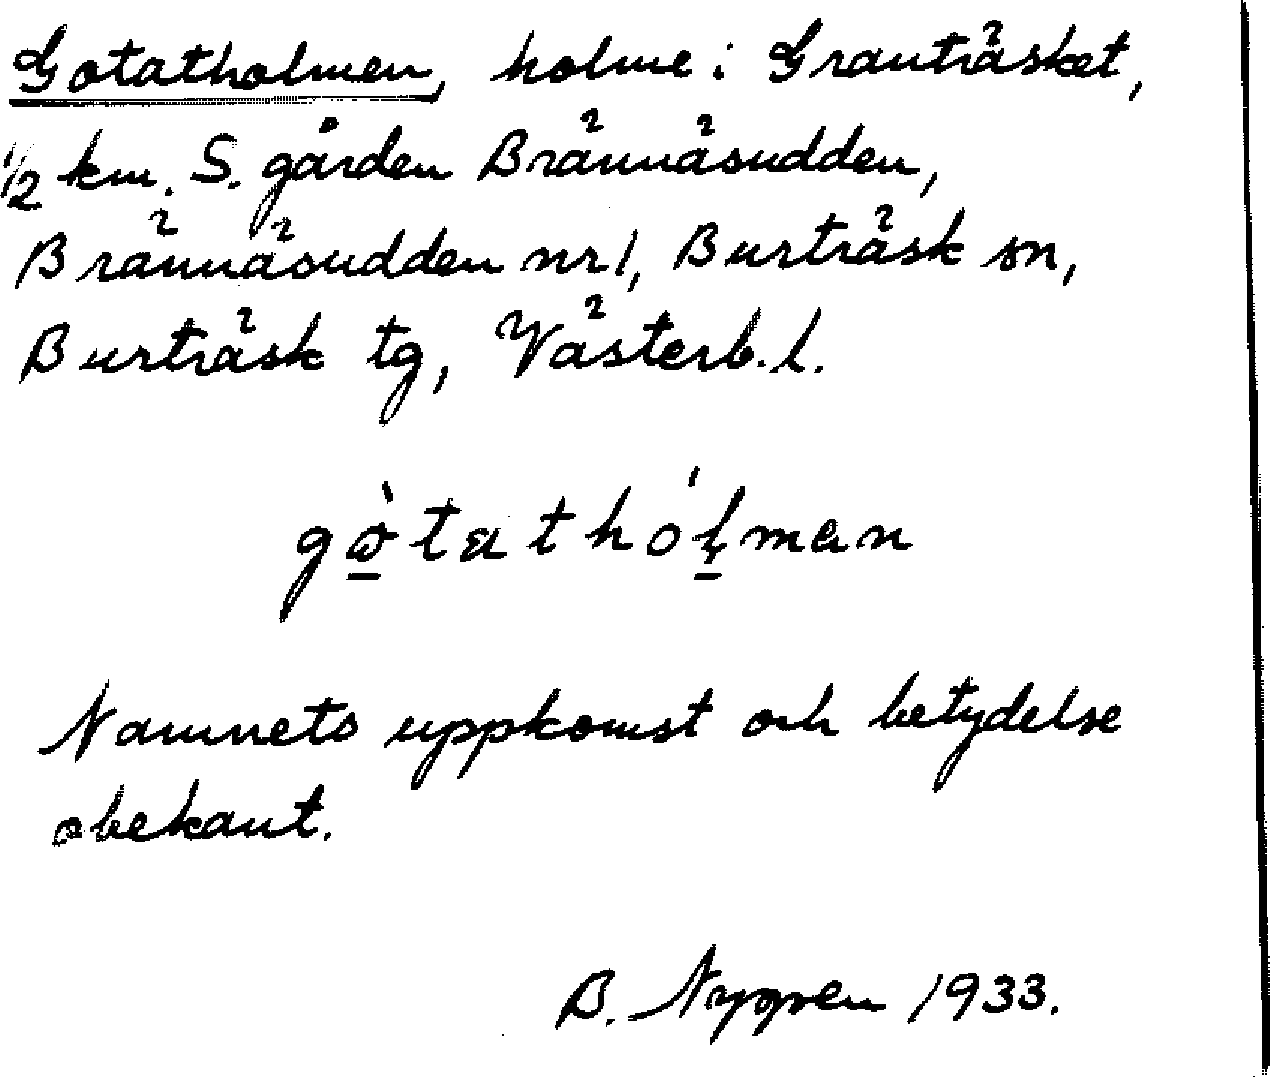 Gotatholmen, holme i Granträsket,
1/2 km. S. gården Brännäsudden,
Brännäsudden nr 1, Burträsk sn,
Burträsk tg, Västerb. l.
gò̠tathóḷman
Namnets uppkomst och betydelse
obekant.
B. Nygren 1933.